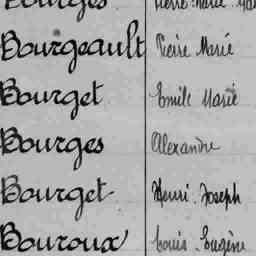 Bourges Pierre Marie
Bourgeault Pierre Marie
Bourget Emile Marie
Bourges Alexandre
Bourget Henri Joseph
Bouroux Louis Eugène